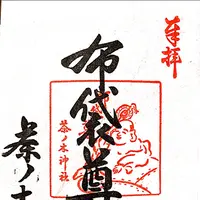 奉拝
布袋尊
茶ノ木神社
茶ノ木